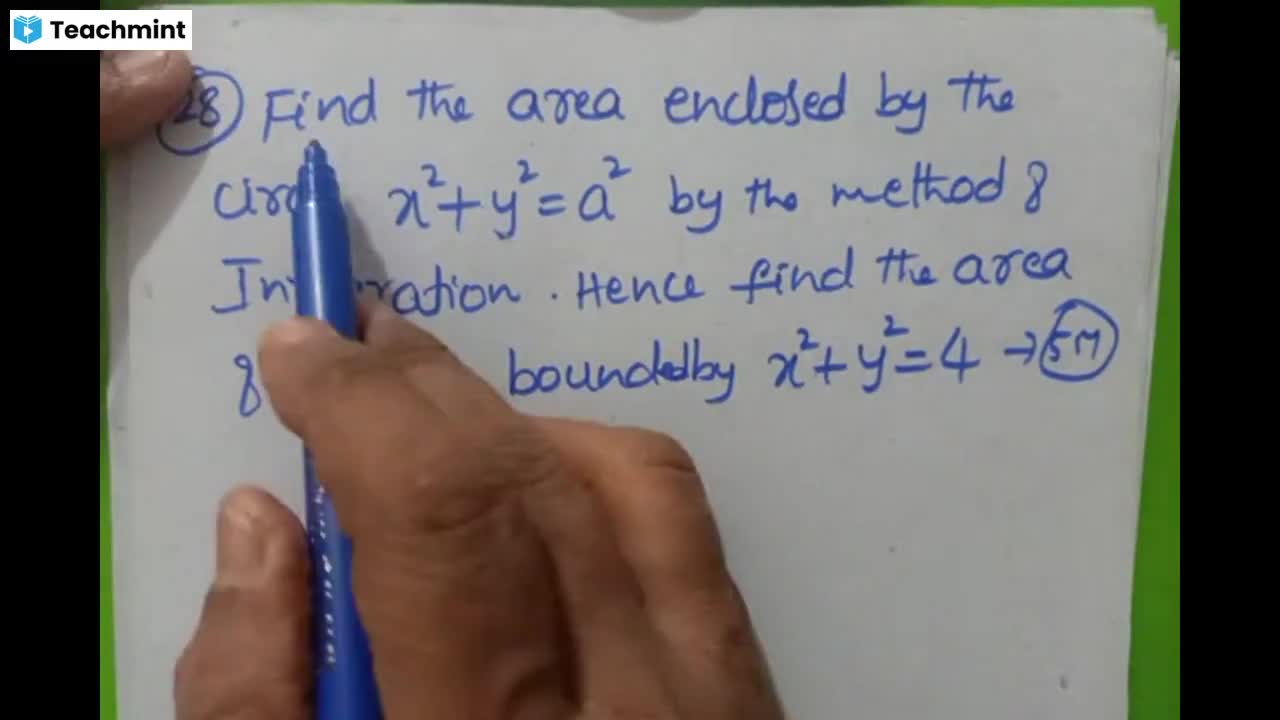 Teachmint
28 Find the area enclosed by the
x²+y²=a² by the method of
Hence find the area
of bounded by x²+y²=4 → 5M